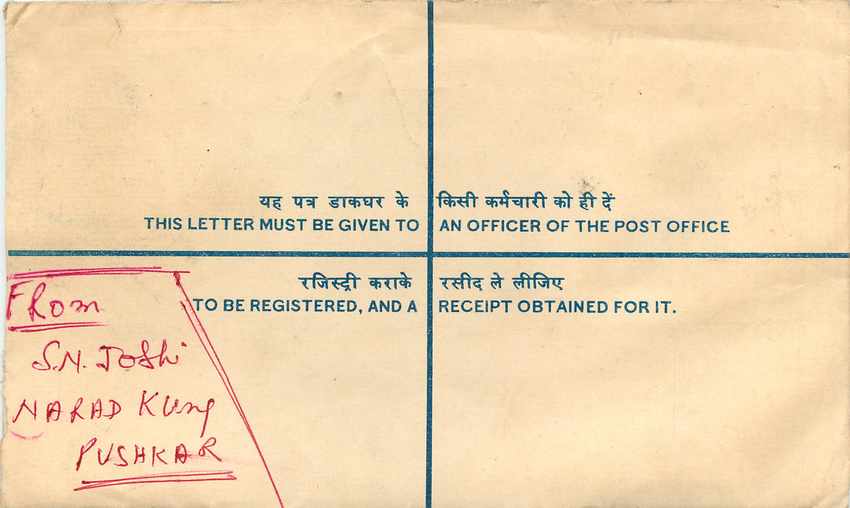 यह पत्र डाकघर के किसी कर्मचारी को ही दें
THIS LETTER MUST BE GIVEN TO AN OFFICER OF THE POST OFFICE
रजिस्ट्री कराके रसीद ले लीजिए
TO BE REGISTERED, AND A RECEIPT OBTAINED FOR IT.
FRom
S.N. JOShi
NARAD KUNJ
PUSHKAR